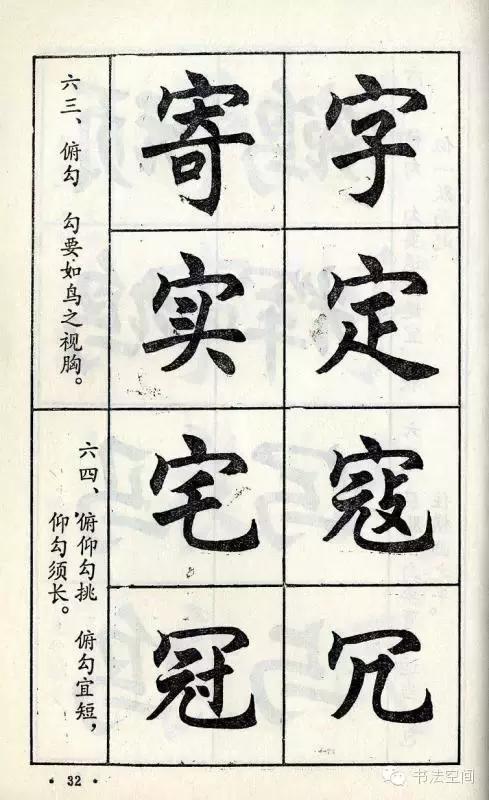 字
定
寄
实
六三、俯勾 勾要如鸟之视胸。
寇
冗
宅
冠
六四、俯仰勾挑 俯勾宜短，
仰勾须长。
· 32 ·
书法空间